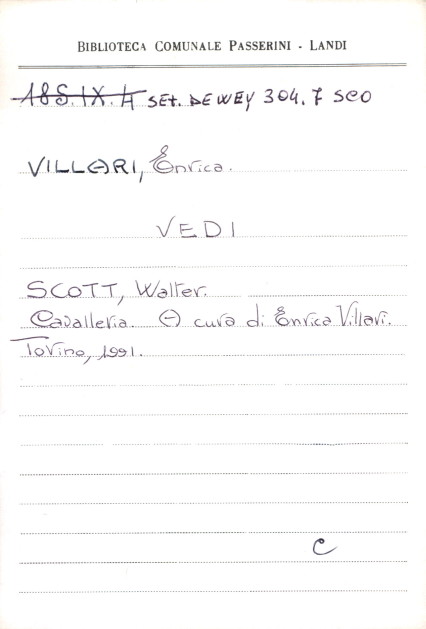 BIBLIOTECA COMUNALE PASSERINI - LANDI
18S.IX.4 SET. DEWEY 304.7 SCO
VILLARI, Enrica.
VEDI
SCOTT, Walter.
Cavalleria. A cura di Enrica Villari.
Torino, 1991.
C